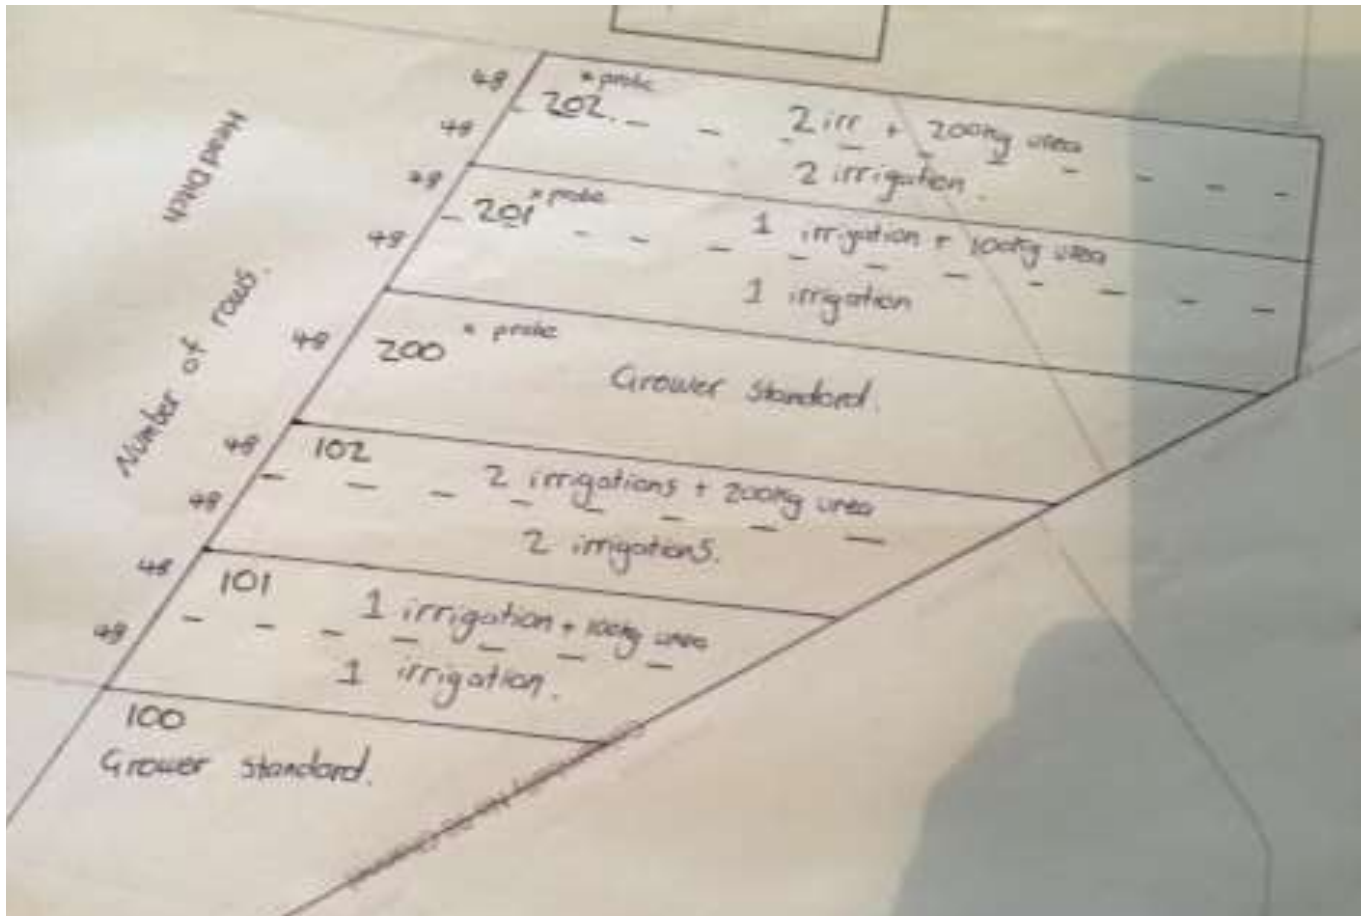 Head Ditch
Number of rows.
48
* probe
202.
2 irr + 200kg urea
48
2 irrigation.
48
* probe
201
1 irrigation + 100kg urea
48
1 irrigation
48
200
* probe
Grower standard.
48
102
2 irrigations + 200kg urea
48
2 irrigations.
48
101
1 irrigation + 100kg urea
48
1 irrigation.
100
Grower standard.